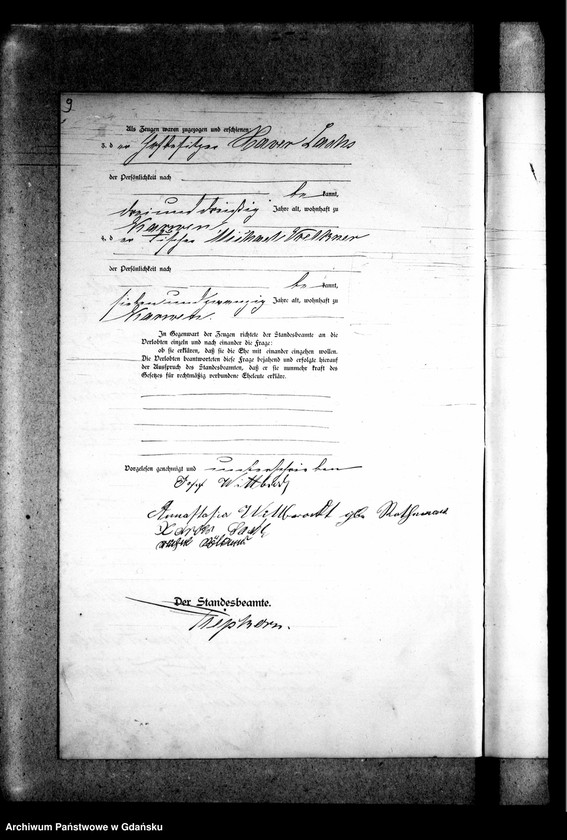 9
Als Zeugen waren zugezogen und erschienen:
3. d er Hofbesitzer Xaver Lachs
der Persönlichkeit nach
be kannt,
dreiunddreißig Jahre alt, wohnhaft zu
Karwen
4. d er Fischer Michael Voelkner
der Persönlichkeit nach
be kannt,
siebenundzwanzig Jahre alt, wohnhaft zu
Karwen.
In Gegenwart der Zeugen richtete der Standesbeamte an die
Verlobten einzeln und nach einander die Frage:
ob sie erklären, daß sie die Ehe mit einander eingehen wollen.
Die Verlobten beantworteten diese Frage bejahend und erfolgte hierauf
der Ausspruch des Standesbeamten, daß er sie nunmehr kraft des
Gesetzes für rechtmäßig verbundene Eheleute erkläre.
Vorgelesen, genehmigt und unterschrieben
Josef Wittbrodt
Annastasia Wittbrodt geb
Xaver
Der Standesbeamte.
Archiwum Państwowe w Gdańsku